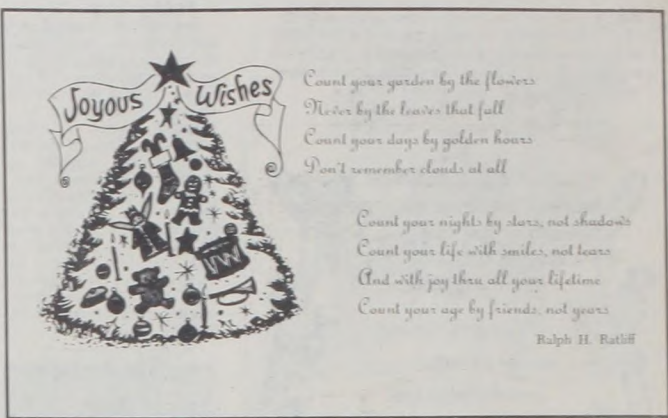 Joyous Wishes
Count your garden by the flowers
Never by the leaves that fall
Count your days by golden hours
Don't remember clouds at all
Count your nights by stars, not shadows
Count your life with smiles, not tears
And with joy thru all your lifetime
Count your age by friends, not years
Ralph H. Ratliff